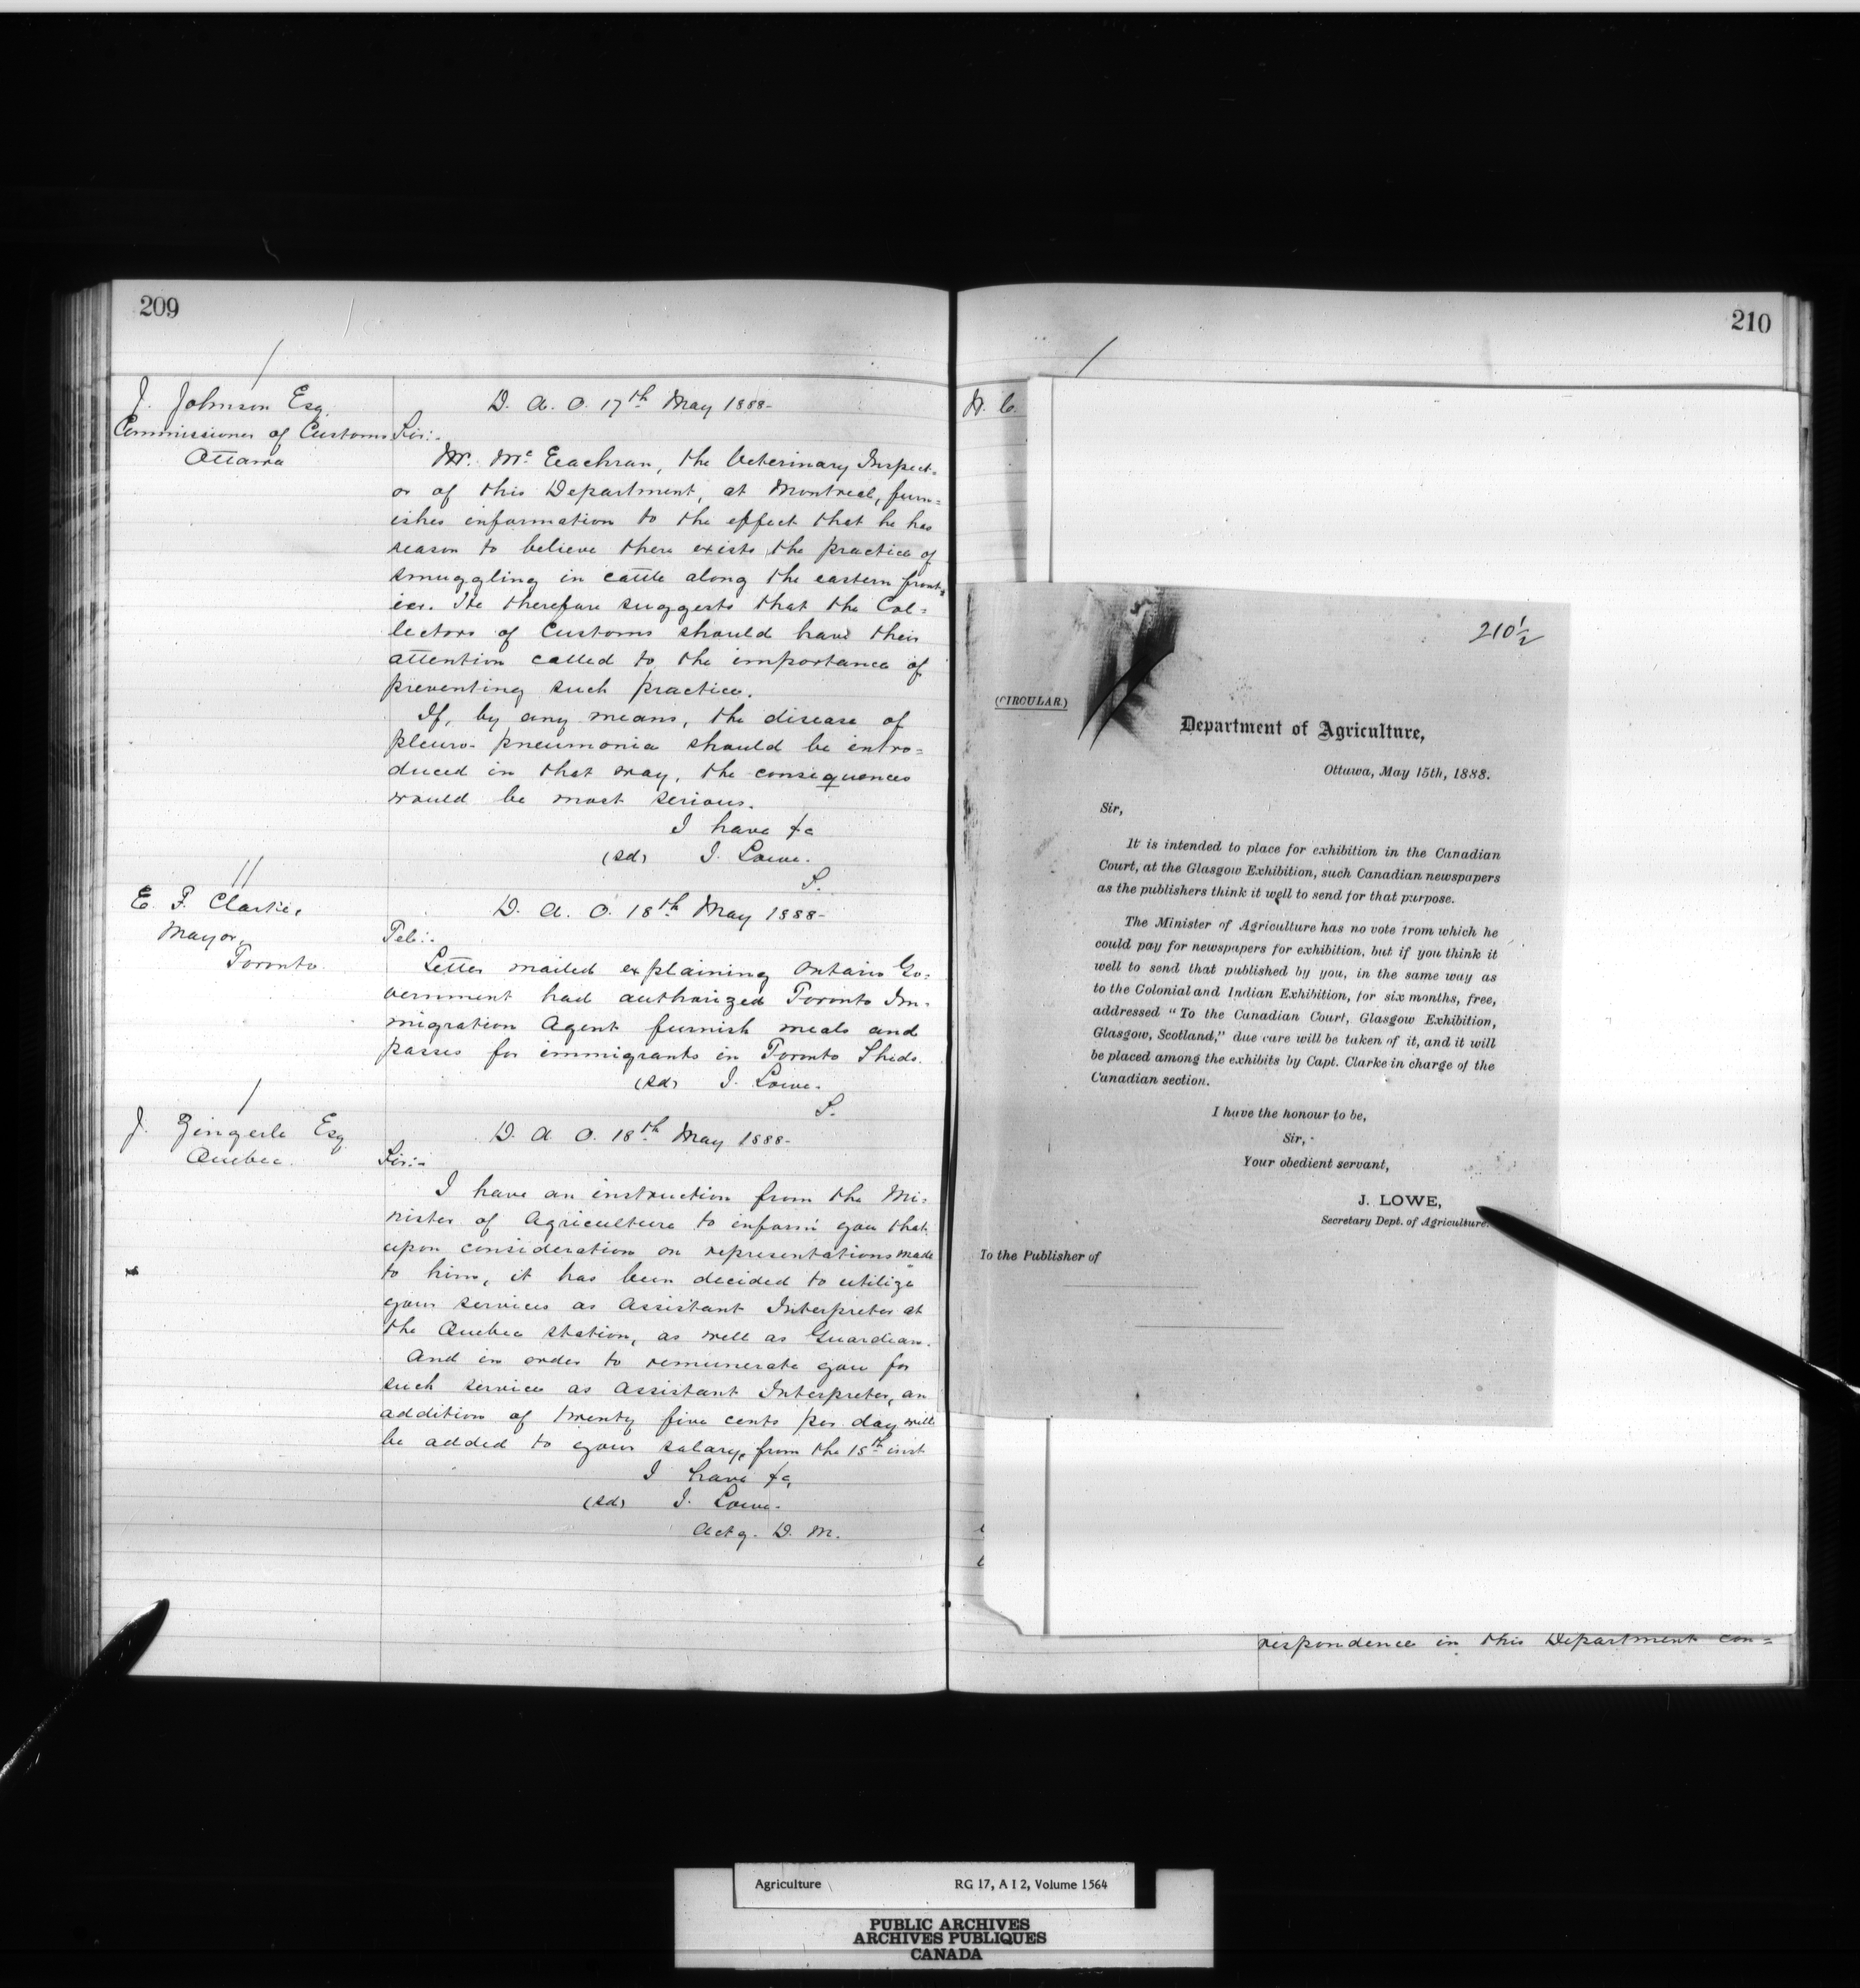 209
J. Johnson Esq.
Commissioner of Customs
Ottawa
D. A. O. 17th May 1888-
Sir:-
Mr. McEachran, the Veterinary Inspect-
or of this Department, at Montreal, furn=
ishes information to the effect that he has
reason to believe there exists the practice of
smuggling in cattle along the eastern front=
ier. He therefore suggests that the Col=
lectors of Customs should have their
attention called to the importance of
preventing such practice.
If, by any means, the disease of
pleuro-pneumonia should be intro=
duced in that way, the consequences
would be most serious.
I have &c
(sd) J. Lowe.
S.
E. F. Clarke,
Mayor,
Toronto.
D. A. O. 18th May 1888-
Tel:-
Letter mailed explaining Ontario Go=
vernment had authorized Toronto Im-
migration Agent furnish meals and
passes for immigrants in Toronto Sheds.
(sd) J. Lowe.
S.
J. Zingerle Esq
Quebec.
D. A. O. 18th May 1888-
Sir:-
I have an instruction from the Mi=
nister of Agriculture to inform you that
upon consideration on representations made
to him, it has been decided to utilize
your services as Assistant Interpreter at
the Quebec station, as well as Guardian.
And in order to remunerate you for
such service as Assistant Interpreter, an
addition of twenty five cents per day will
be added to your salary, from the 15th inst
I have &c,
(sd) J. Lowe.
Actg. D. M.
210
210½
(CIRCULAR.)
Department of Agriculture,
Ottawa, May 15th, 1888.
Sir,
It is intended to place for exhibition in the Canadian
Court, at the Glasgow Exhibition, such Canadian newspapers
as the publishers think it well to send for that purpose.
The Minister of Agriculture has no vote from which he
could pay for newspapers for exhibition, but if you think it
well to send that published by you, in the same way as
to the Colonial and Indian Exhibition, for six months, free,
addressed "To the Canadian Court, Glasgow Exhibition,
Glasgow, Scotland," due care will be taken of it, and it will
be placed among the exhibits by Capt. Clarke in charge of the
Canadian section.
I have the honour to be,
Sir,
Your obedient servant,
J. LOWE,
Secretary Dept. of Agriculture.
To the Publisher of
respondence in this Department con=
Agriculture RG 17, A I 2, Volume 1564
PUBLIC ARCHIVES
ARCHIVES PUBLIQUES
CANADA